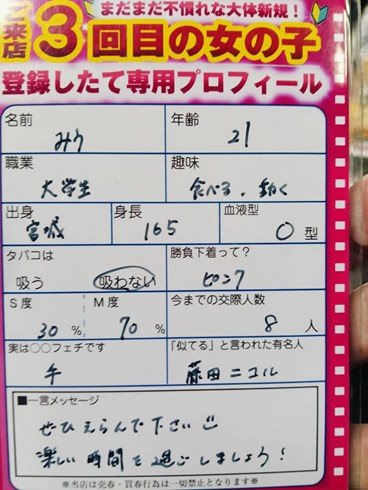 まだまだ不慣れな大体新規！
ご来店3回目の女の子
登録したて専用プロフィール
名前 みう
年齢 21
職業 大学生
趣味 食べる、動く
出身 宮城
身長 165
血液型 O型
タバコは 吸う 吸わない
勝負下着って？ ピンク
S度 30%
M度 70%
今までの交際人数 8人
実は○○フェチです 手
「似てる」と言われた有名人 藤田ニコル
■一言メッセージ
ぜひえらんで下さい
楽しい時間を過ごしましょう！
※当店は売春・買春行為は一切禁止となります※